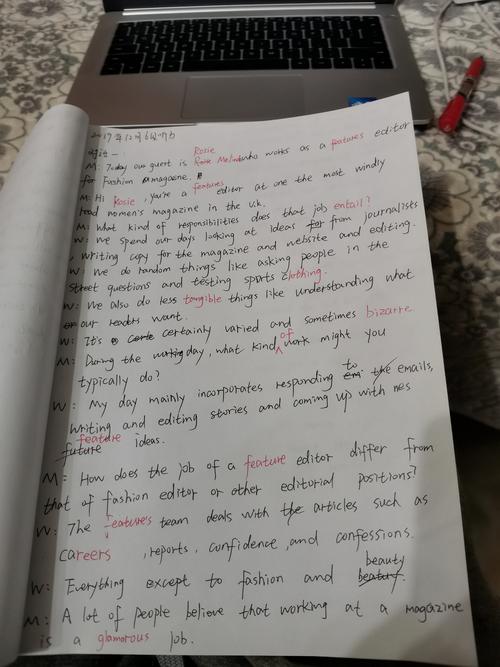 2017年12月6级听力
对话一
Rosie
M: Today our guest is Rose Melinda who works as a features editor
for Fashion magazine.
M: Hi Rosie, you're a features editor at one the most windly
read women's magazine in the U.K.
M: What kind of responsibilities does that job entail?
W: We spend our days looking at ideas for from journalists
, writing copy for the magazine and website and editing.
W: We do random things like asking people in the
street questions and testing sports clothing.
W: We also do less tangible things like understanding what
our readers want.
W: It's certainly varied and sometimes bizarre.
M: During the working day, what kind of work might you
typically do?
W: My day mainly incorporates responding to the emails,
writing and editing stories and coming up with nes
future feature ideas.
M: How does the job of a feature editor differ from
that of fashion editor or other editorial positions?
W: The Features team deals with the articles such as
careers , reports, confidence, and confessions.
beauty
W: Everything except to fashion and
M: A lot of people believe that working at a magazine
is a glamorous job.